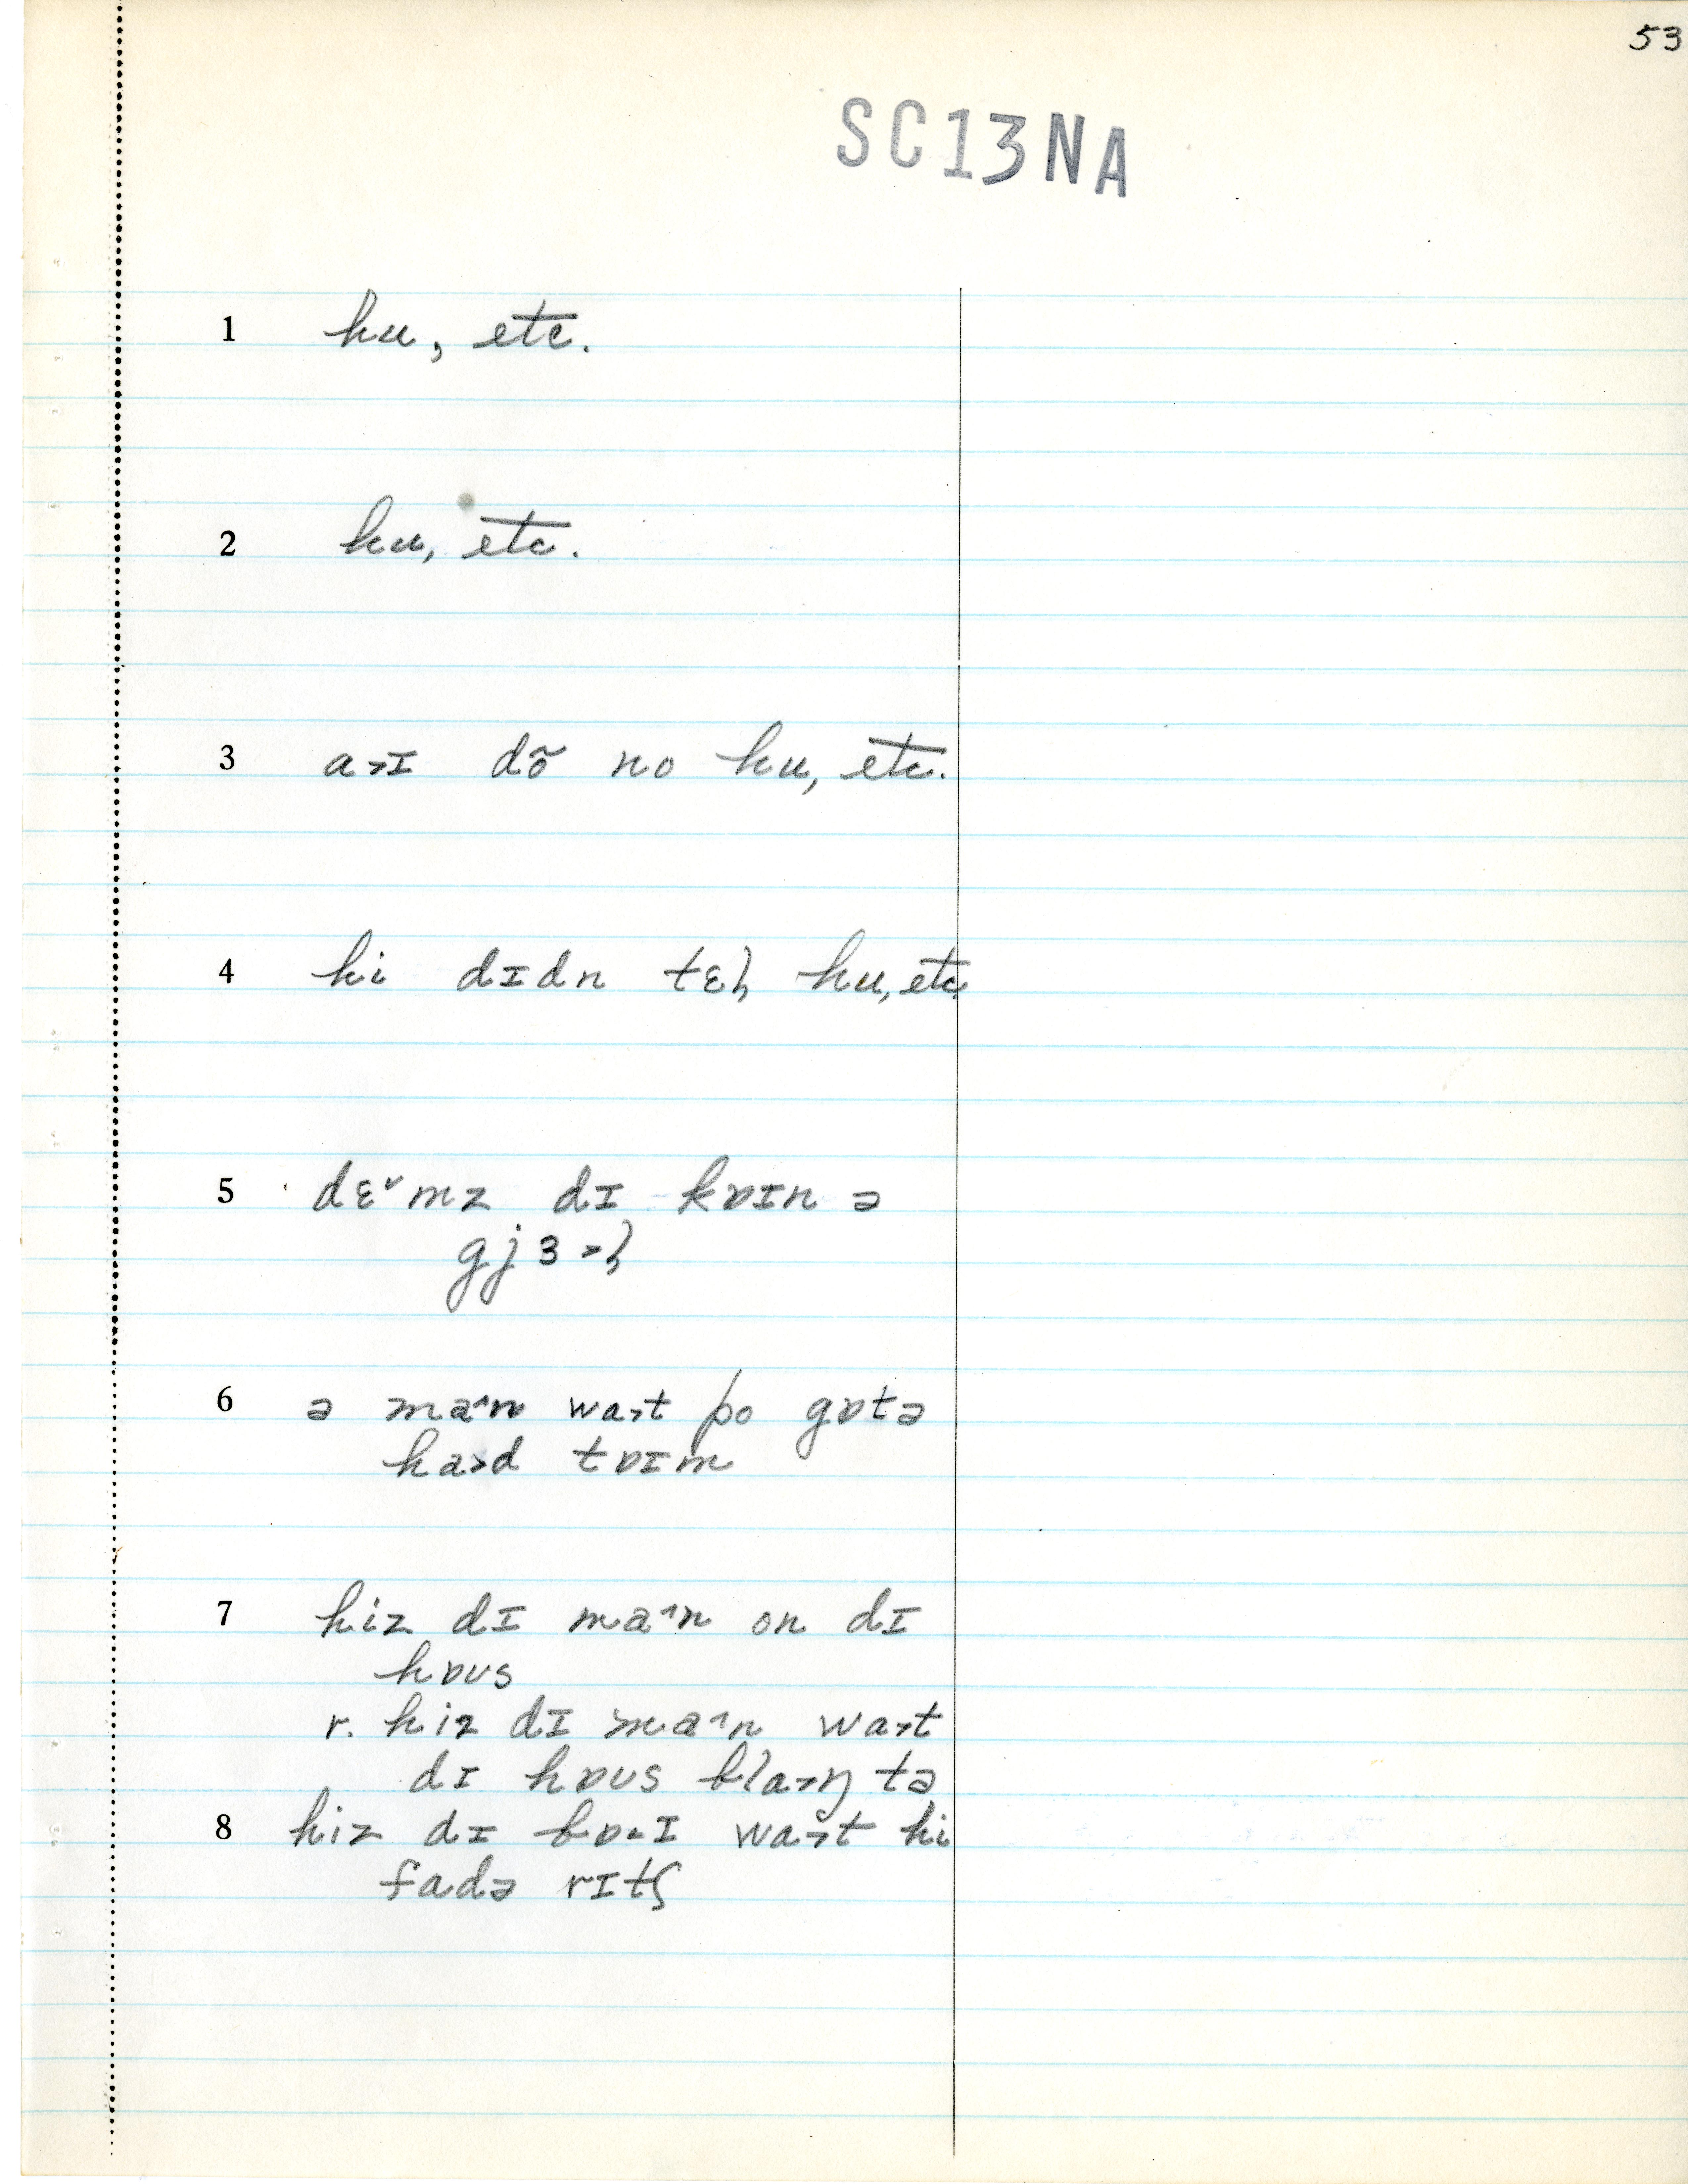 53
SC13NA
1 hu, etc.
2 hu, etc.
3 a˃ɪ dõ no hu, etc.
4 hi dɪdn tɛl̩ hu, etc.
5 dɛ˅mz dɪ kɒɪn ə
gjɜ˃l̩
6 ə ma˄n wa˃t po gɒtə
ha˃d tɒɪm
7 hiz dɪ ma˄n on dɪ
hɒʊs
r. hiz dɪ ma˄n wa˃t
dɪ hɒʊs bla˃ŋ tə
8 hiz dɪ bɒ˔ɪ wa˃t hi
fadə rɪtʃ